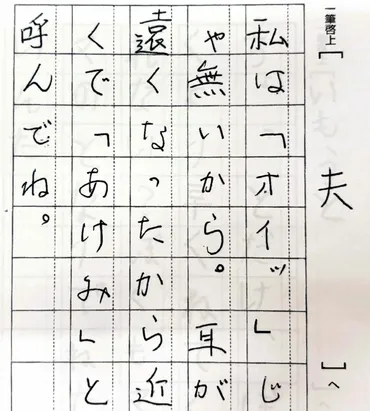 一筆啓上「夫」へ
私は「オイッ」じ
ゃ無いから。耳が
遠くなったから近
くで「あけみ」と
呼んでね。